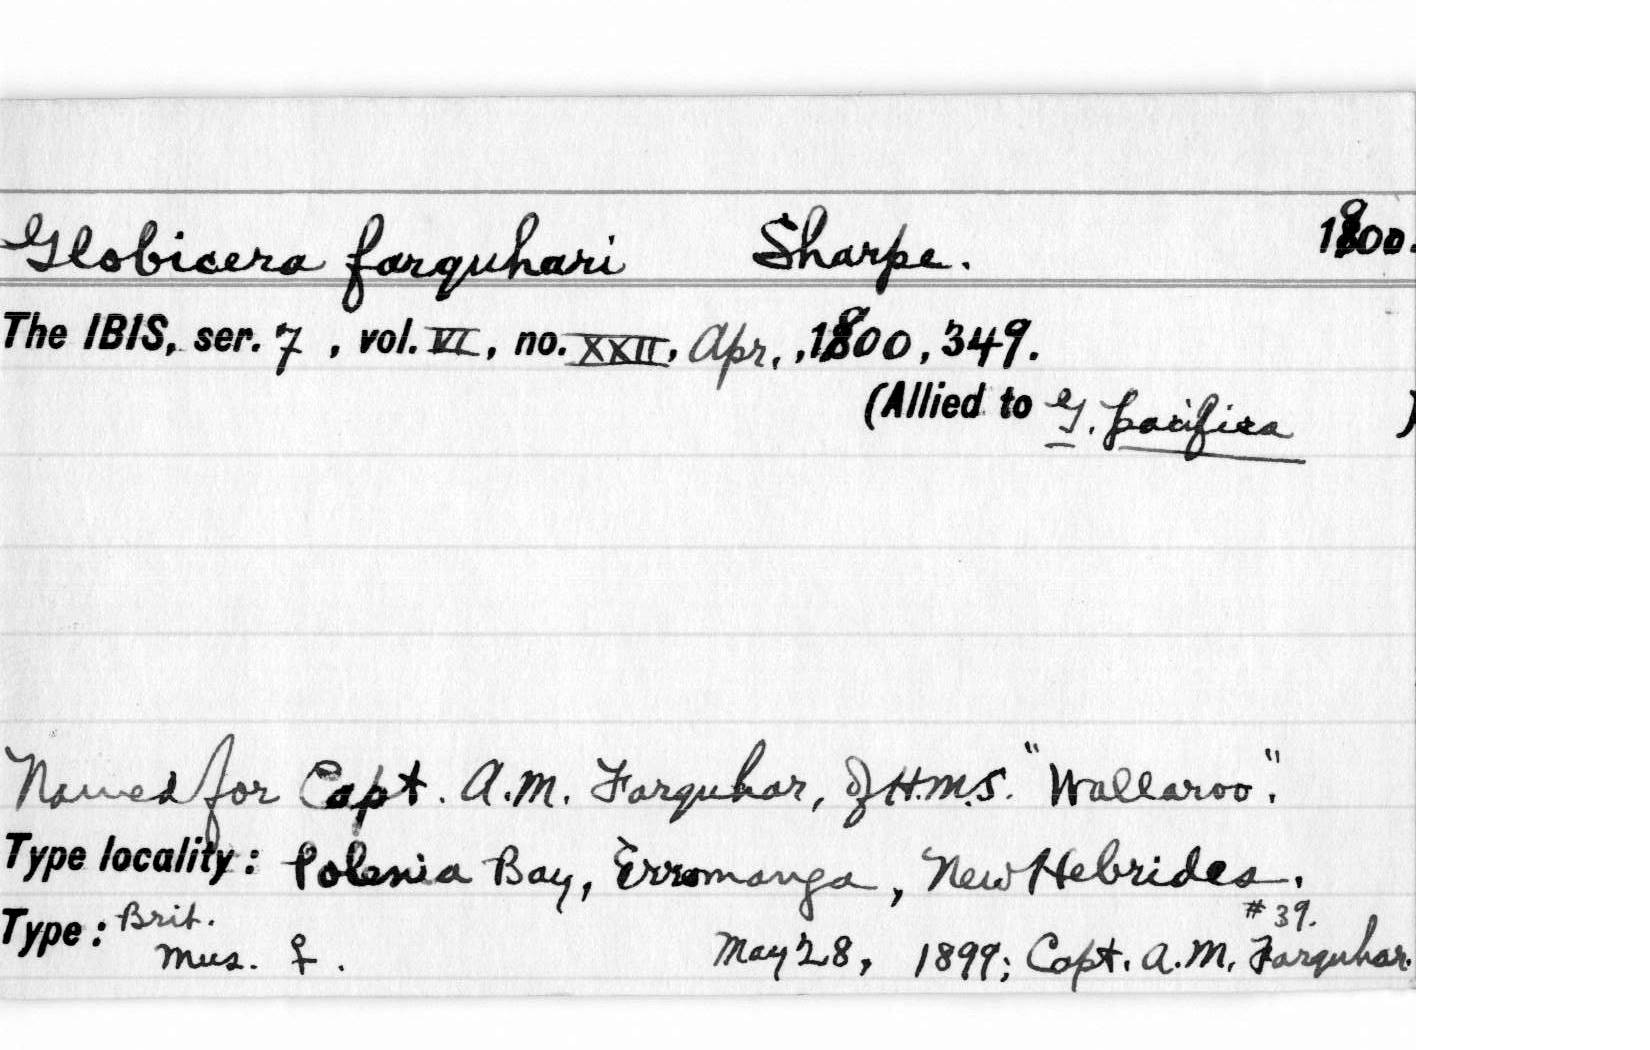 Globicera farquhari Sharpe. 1900.
The IBIS, ser. 7, vol. VI, no. XXII, Apr., 1900, 349.
(Allied to G. pacifica )
Named for Capt. A.M. Farquhar, of H.M.S. "Wallaroo".
Type locality: Polenia Bay, Erromanga, New Hebrides.
Type: Brit. Mus. ♀. #39. May 28, 1899; Capt. A.M. Farquhar.